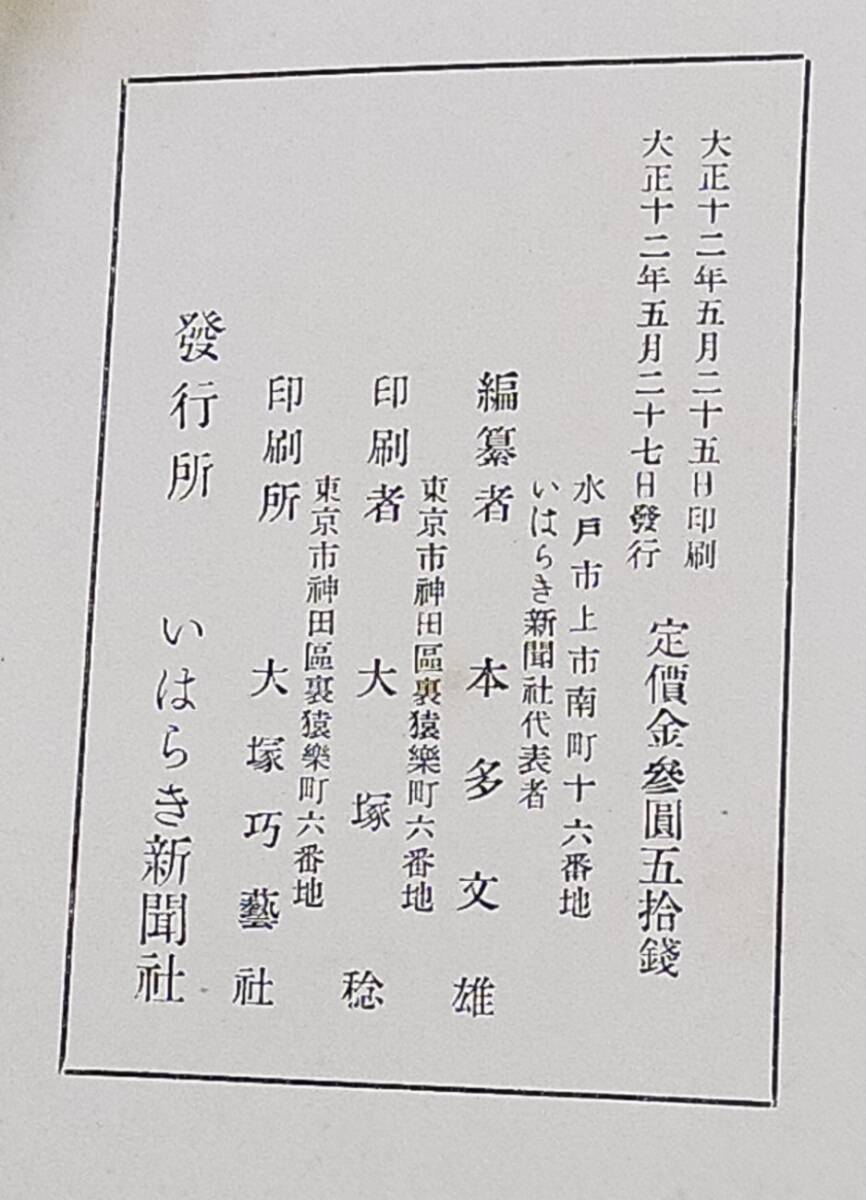 大正十二年五月二十五日印刷
大正十二年五月二十七日發行
定價金參圓五拾錢
水戸市上市南町十六番地
いはらき新聞社代表者
編纂者 本多文雄
東京市神田區裏猿樂町六番地
印刷者 大塚稔
東京市神田區裏猿樂町六番地
印刷所 大塚巧藝社
發行所 いはらき新聞社